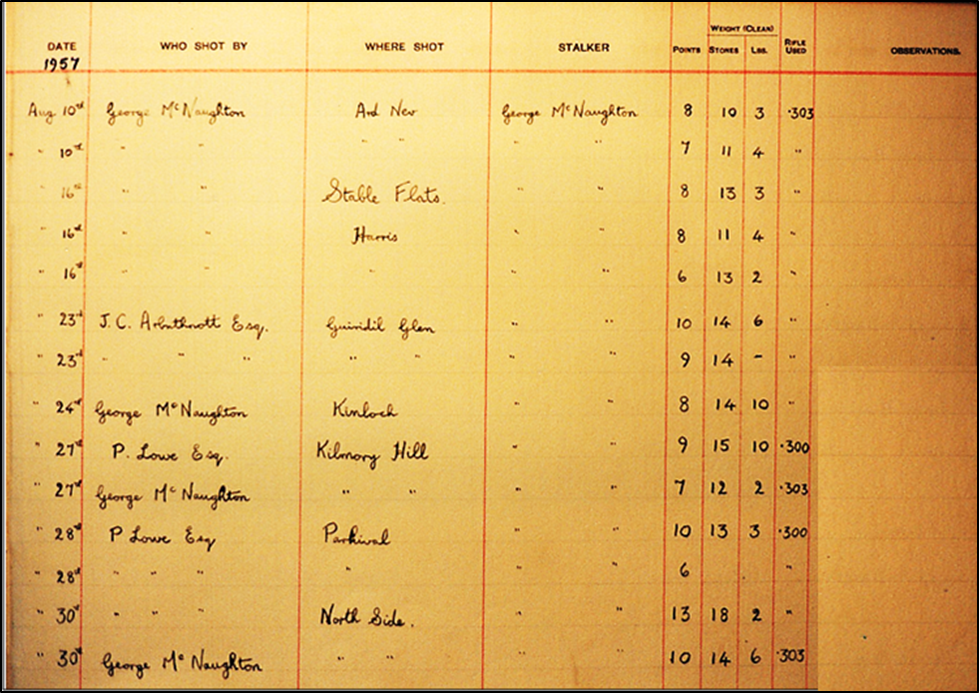 WEIGHT (CLEAN)
DATE WHO SHOT BY WHERE SHOT STALKER POINTS STONES LBS. RIFLE USED OBSERVATIONS.
1957
Aug 10th George McNaughton Ard Nev George McNaughton 8 10 3 .303
" 10th " " " " " " 7 11 4 "
" 16th " " Stable Flats. " " 8 13 3 "
" 16th " " Harris " " 8 11 4 "
" 16th " " " " " 6 13 2 "
" 23rd J. C. Arbuthnott Esq. Guiridil Glen " " 10 14 6 "
" 23rd " " " " " " " 9 14 - "
" 24th George McNaughton Kinloch " " 8 14 10 "
" 27th P. Lowe Esq. Kilmory Hill " " 9 15 10 .300
" 27th George McNaughton " " " " 7 12 2 .303
" 28th P Lowe Esq Parkival " " 10 13 3 .300
" 28th " " " " " " 6
" 30th " " " North Side. " " 13 18 2 "
" 30th George McNaughton " " " " 10 14 6 .303